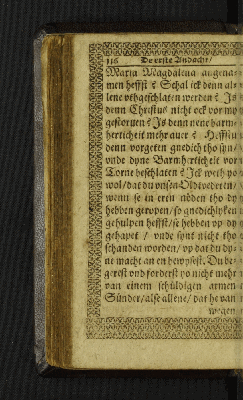 116 De erste Andacht/
Maria Magdalena angena-
men heffst? Schal ick denn al-
lene vthgeschlaten werden? Js
denn Christus nicht ock vor my
gestoruen? Js denn nene barm-
herticheit mehr auer? Heffstu
denn vorgeten gnedich tho syn/
vnde dyne Barmherticheit vor
Torne beschlaten? Jck weth yo
wol/dat du vnsen Oldvedern/
wenn se in eren nöden tho dy
hebben geropen/ so gnedichlyken
gehulpen heffst/ se hebben vp dy
gehapet / vnde synt nicht tho
schanden worden/ vp dat du dy-
ne macht an en bewysest. Du be-
gerest vnd forderst yo nicht mehr
van einem schüldigen armen
Sünder/ alse allene/ dat he van
wegen